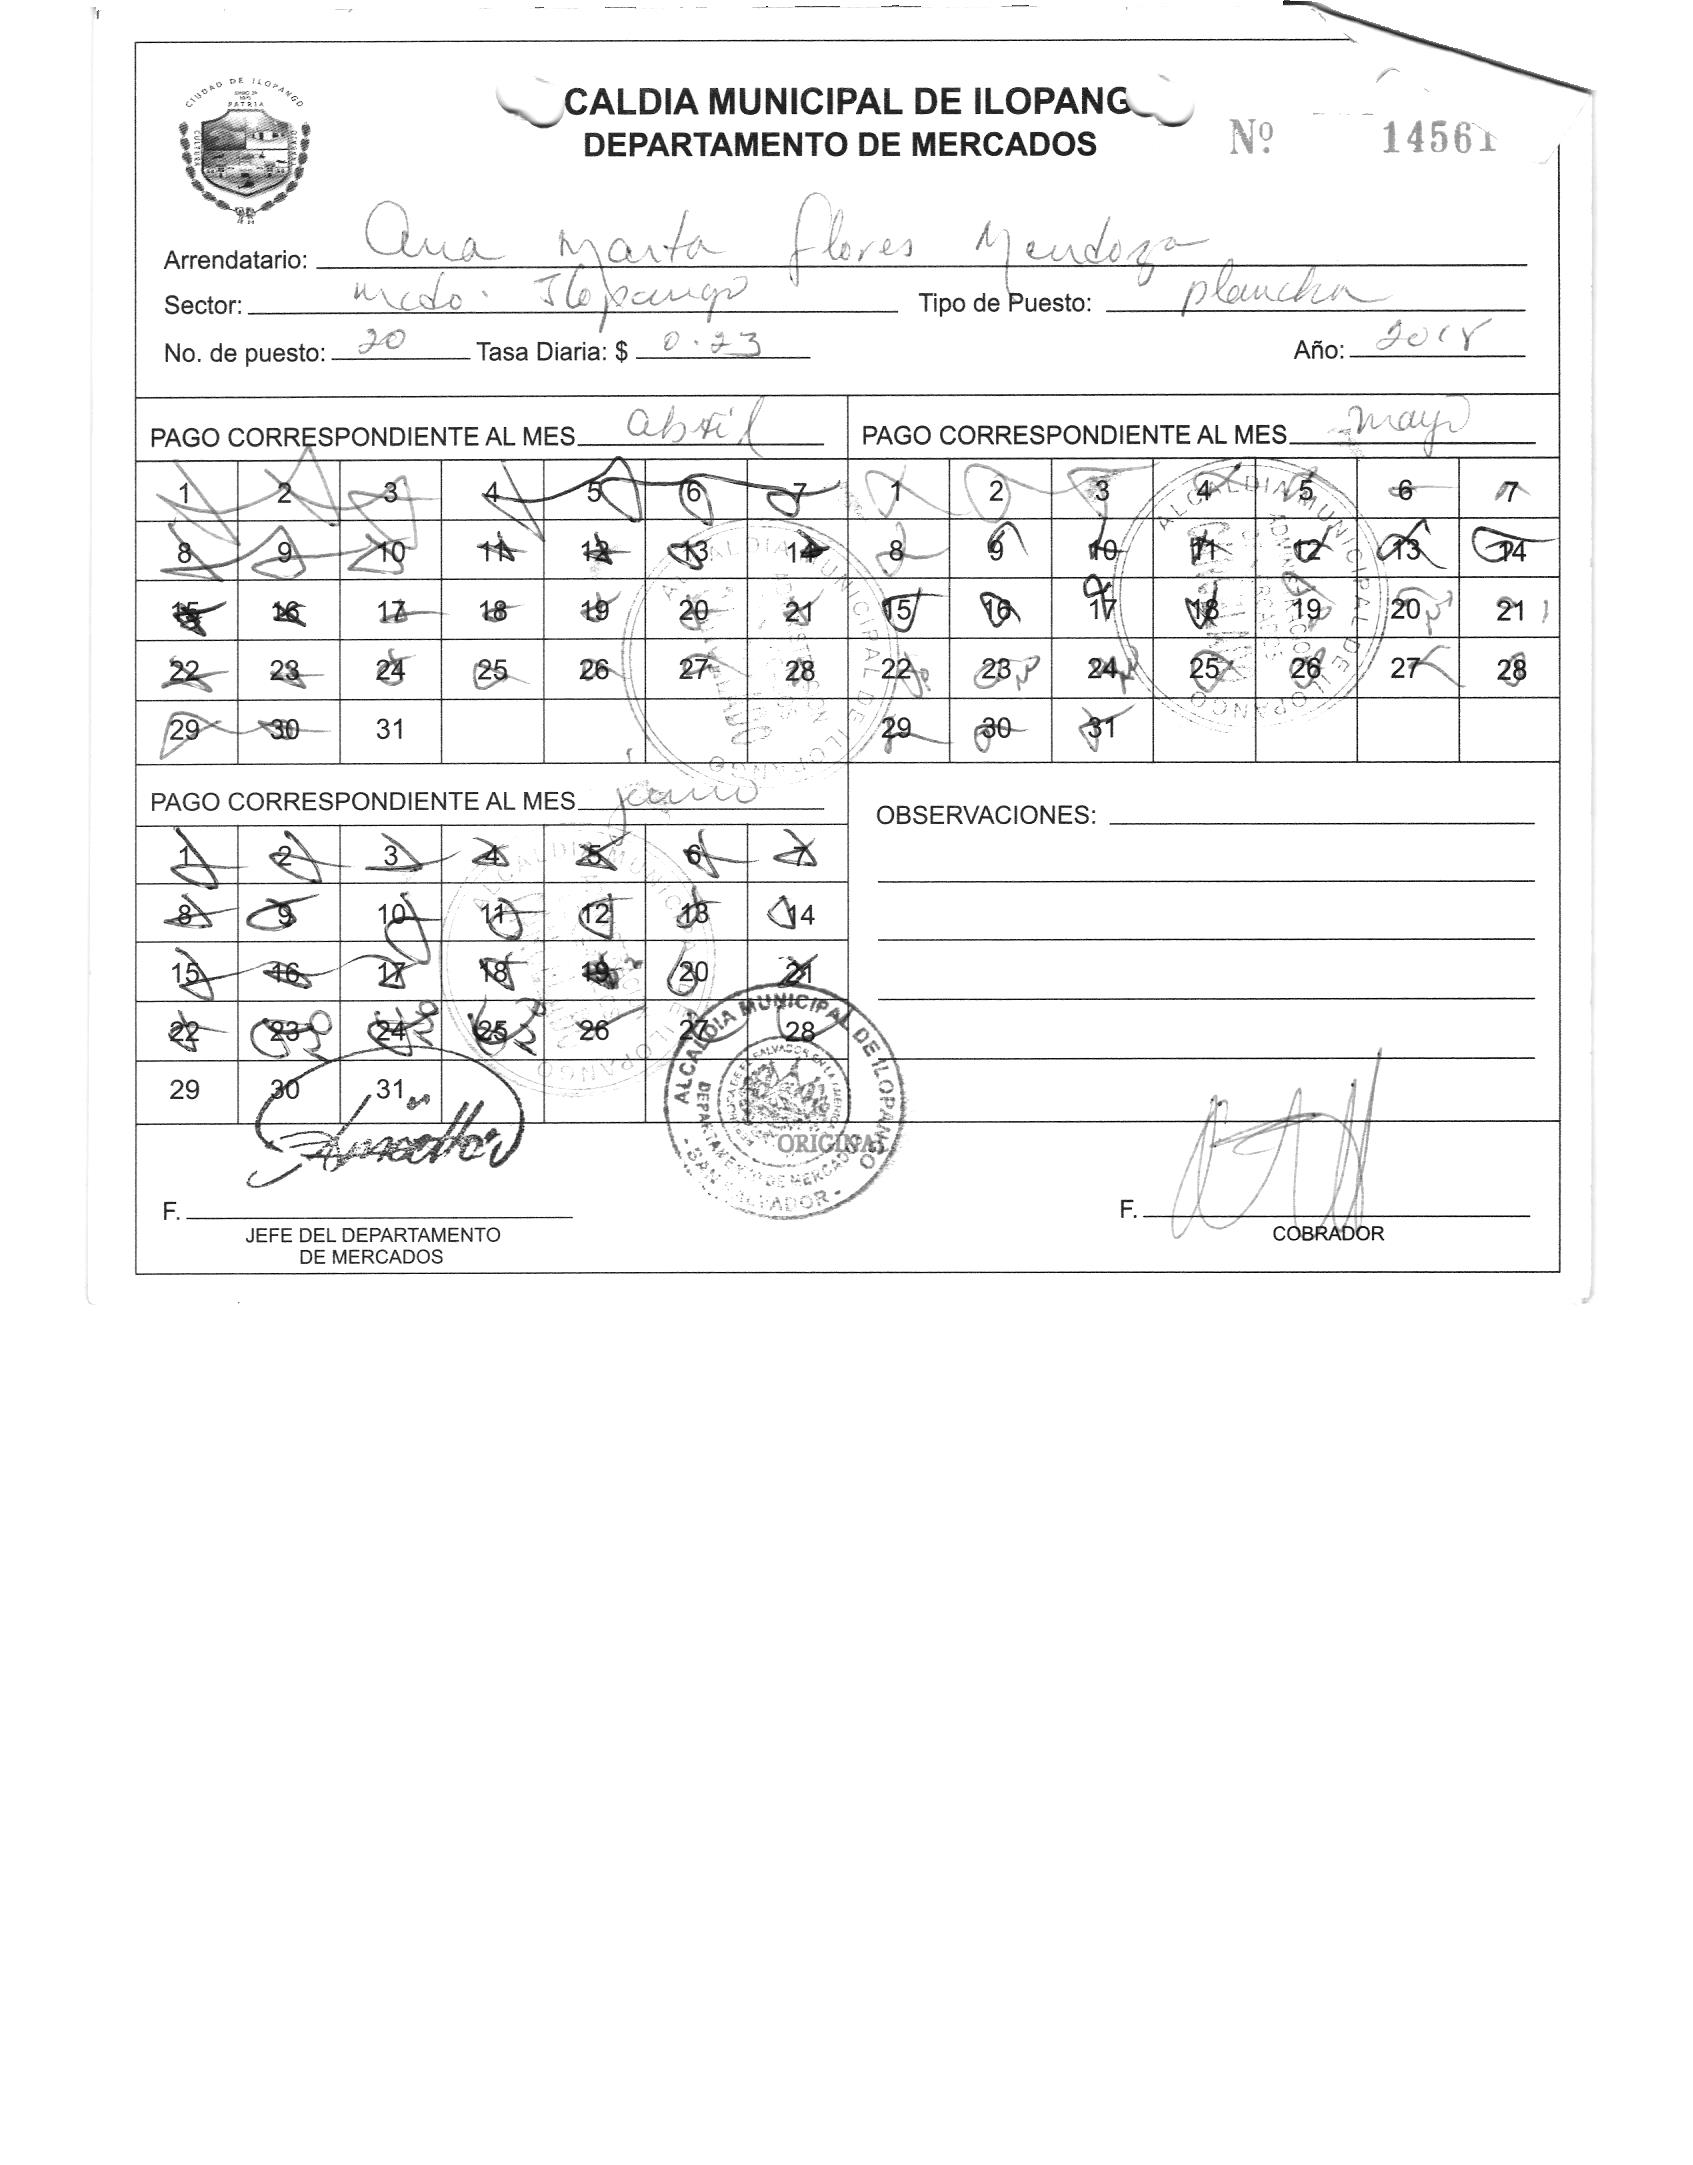 CIUDAD DE ILOPANGO
PATRIA
CULTURA
CALDIA MUNICIPAL DE ILOPANG
DEPARTAMENTO DE MERCADOS
Nº 14561
Arrendatario: Ana Marta Flores Mendoza
Sector: mcdo. Ilopango Tipo de Puesto: plancha
No. de puesto: 20 Tasa Diaria: $ 0.23 Año: 2018
PAGO CORRESPONDIENTE AL MES abril
1 2 3 4 5 6 7
8 9 10 11 12 13 14
15 16 17 18 19 20 21
22 23 24 25 26 27 28
29 30 31
PAGO CORRESPONDIENTE AL MES mayo
1 2 3 4 5 6 7
8 9 10 11 12 13 14
15 16 17 18 19 20 21
22 23 24 25 26 27 28
29 30 31
PAGO CORRESPONDIENTE AL MES junio
1 2 3 4 5 6 7
8 9 10 11 12 13 14
15 16 17 18 19 20 21
22 23 24 25 26 27 28
29 30 31
OBSERVACIONES:
ALCALDIA MUNICIPAL DE ILOPANGO
DEPARTAMENTO DE MERCADOS
- SAN SALVADOR -
ORIGINAL
F.
JEFE DEL DEPARTAMENTO
DE MERCADOS
F.
COBRADOR